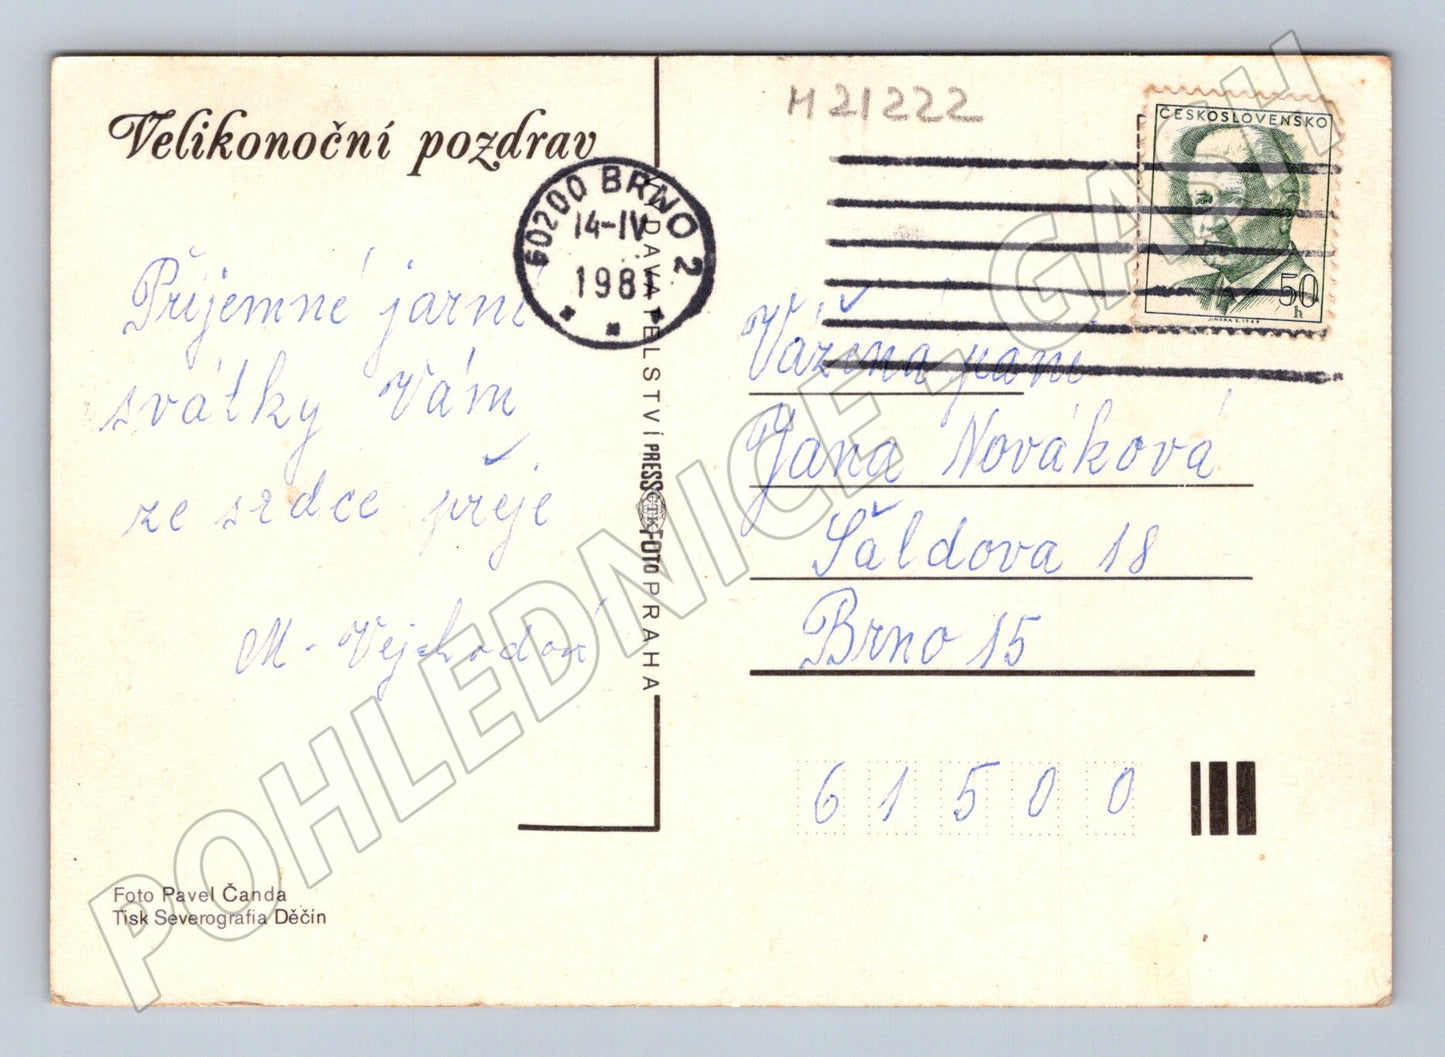 Velikonoční pozdrav
Příjemné jarní
svátky Vám
ze srdce přeje
M.
Foto Pavel Čanda
Tisk Severografia Děčín
60200 BRNO 2
14-IV
1981
VYDAVATELSTVÍ PRESSFOTO PRAHA
ČTK
M 21222
ČESKOSLOVENSKO
50
h
JINDRA S. 1968
Vážená paní
Jana Nováková
Šaldova 18
Brno 15
61500
POHLEDNICE - GASH